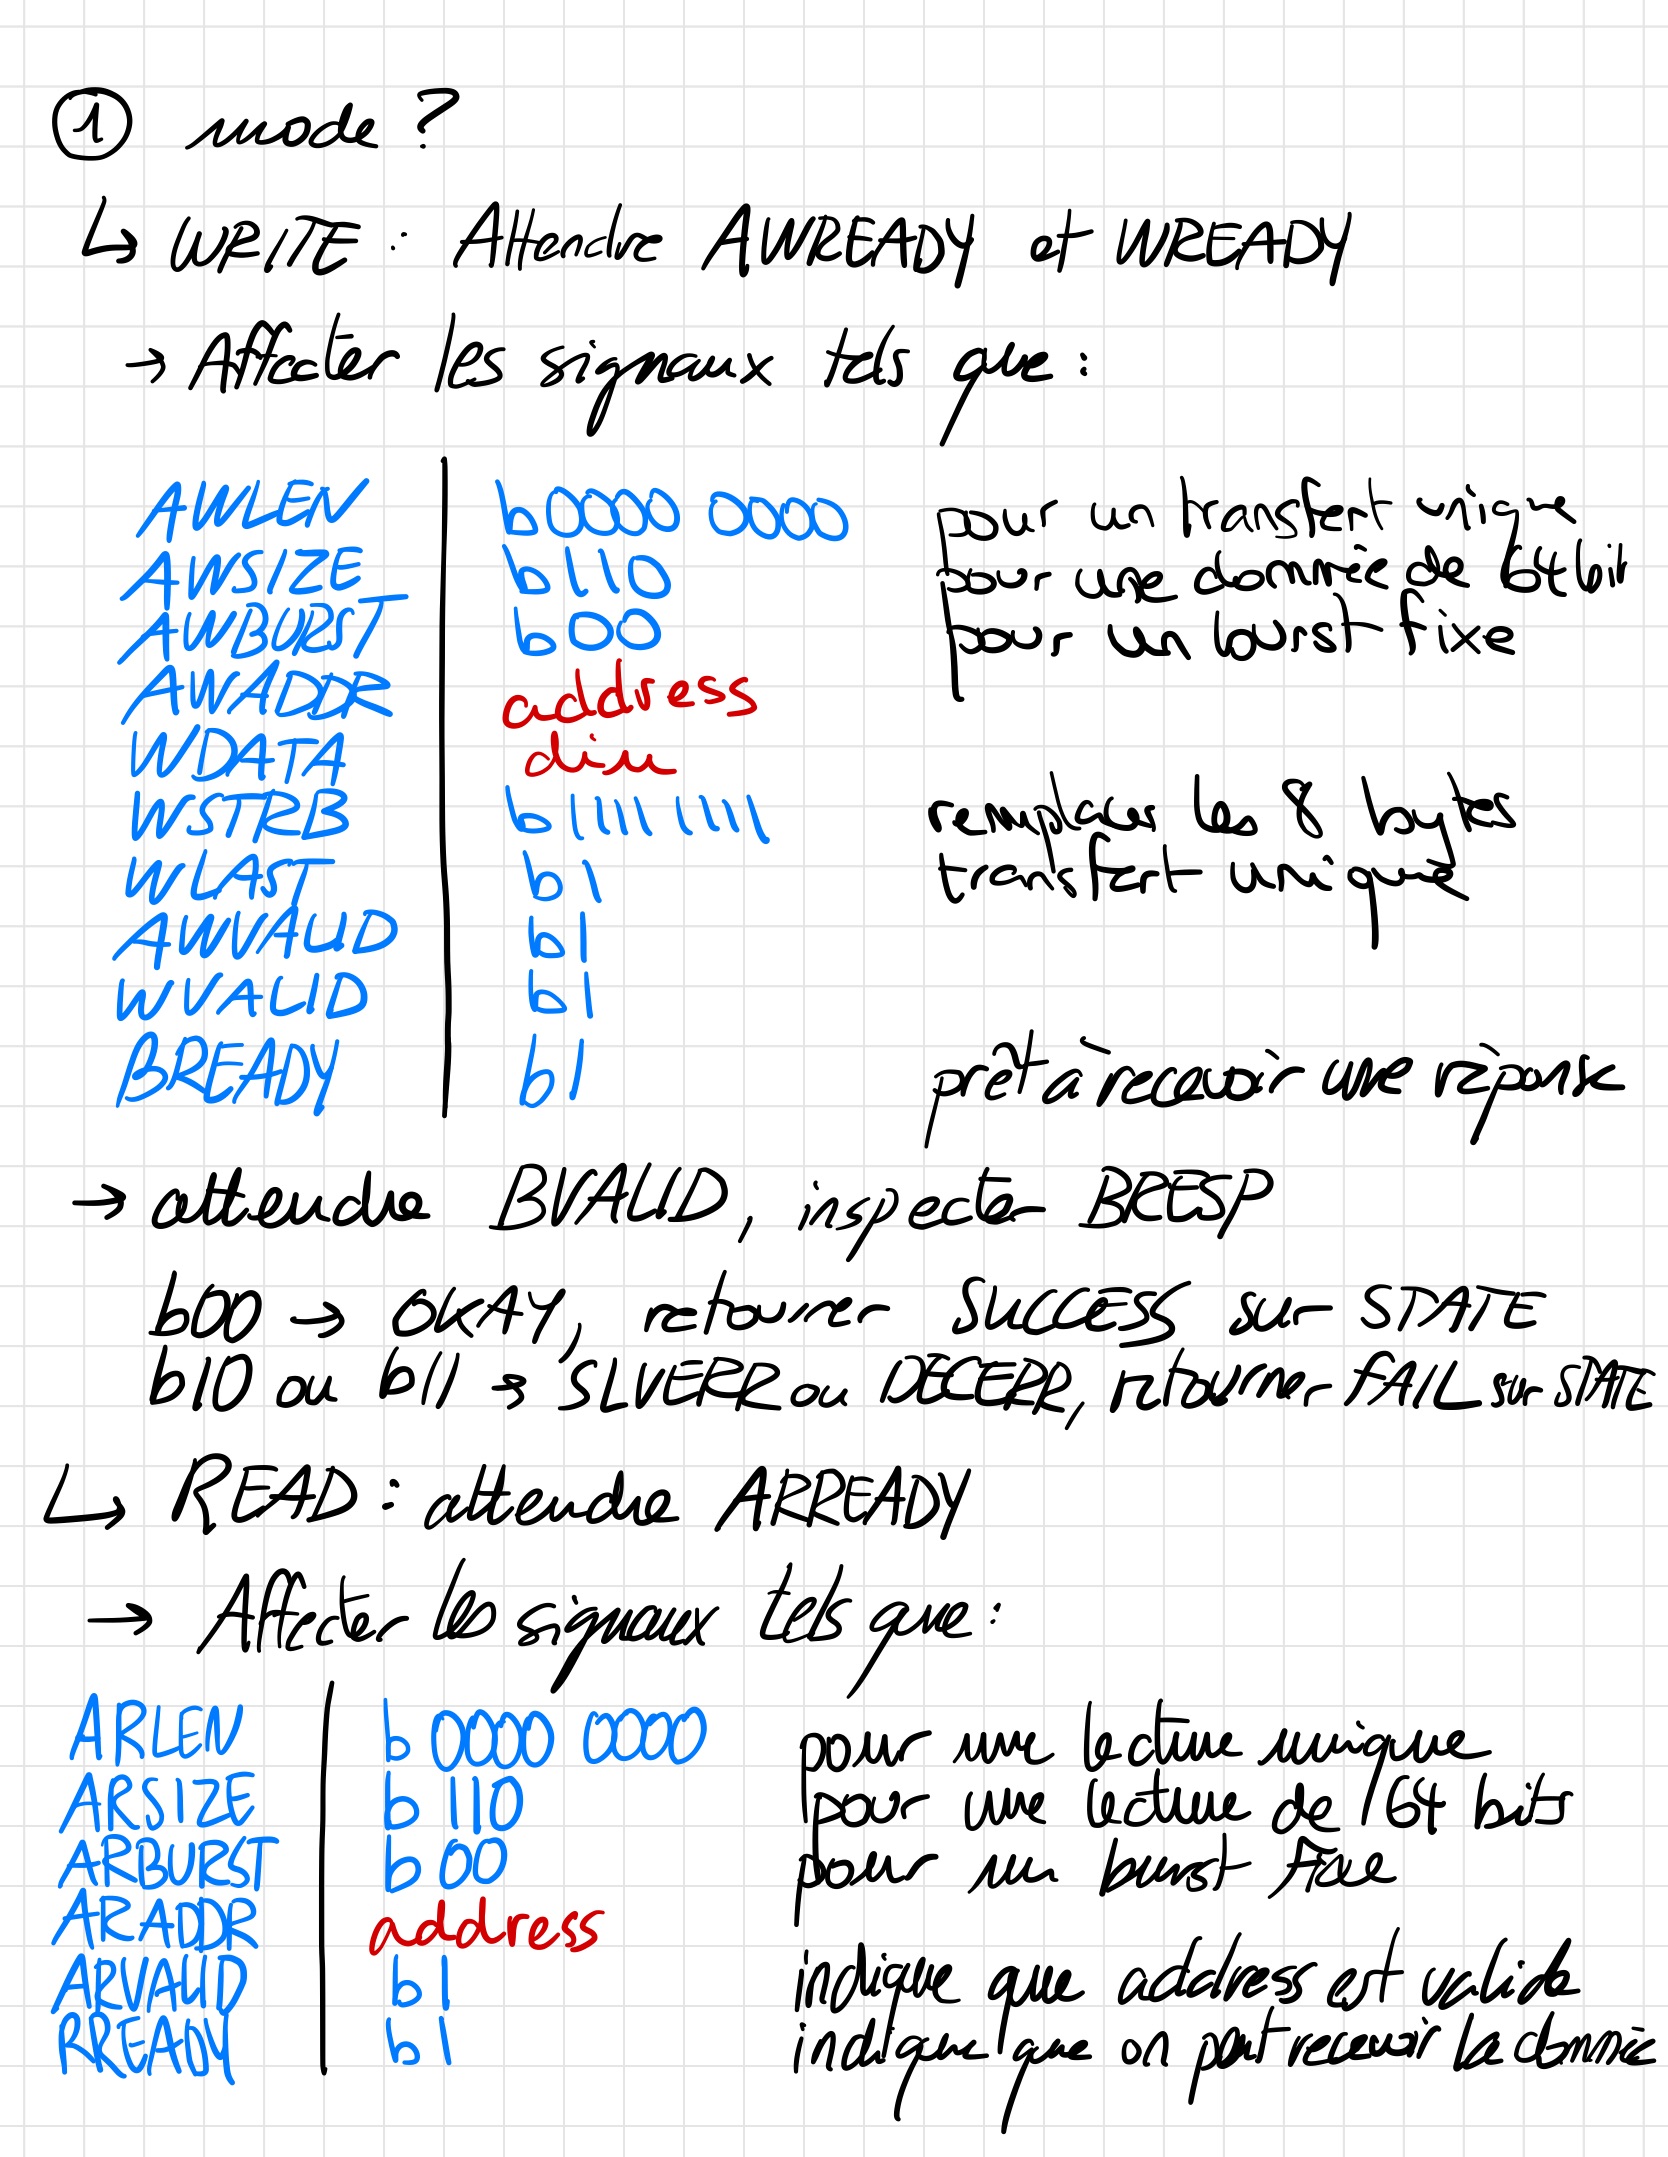 ① mode ?
↳ WRITE : Attendre AWREADY et WREADY
→ Affecter les signaux tels que :
AWLEN b0000 0000 pour un transfert unique
AWSIZE b110 pour une donnée de 64 bit
AWBURST b00 pour un burst fixe
AWADDR address
WDATA din
WSTRB b11111111 remplacer les 8 bytes
WLAST b1 transfert unique
AWVALID b1
WVALID b1
BREADY b1 prêt à recevoir une réponse
→ attendre BVALID, inspecter BRESP
b00 → OKAY, retourner SUCCESS sur STATE
b10 ou b11 → SLVERR ou DECERR, retourner FAIL sur STATE
↳ READ : attendre ARREADY
→ Affecter les signaux tels que :
ARLEN b 0000 0000 pour une lecture unique
ARSIZE b 110 pour une lecture de 64 bits
ARBURST b 00 pour un burst fixe
ARADDR address
ARVALID b1 indique que address est valide
RREADY b1 indique que on peut recevoir la donnée